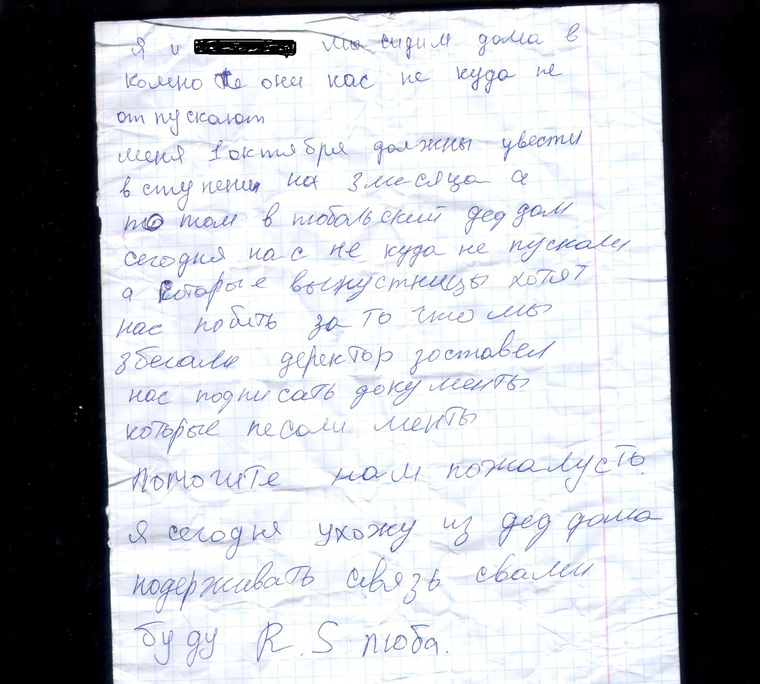 я и мы сидим дома в
комноте они нас не куда не
отпускают
меня 1 октября должны увести
в ступени на 3 месяца а
то том в тобольский дед дом
сегодня нас не куда не пускали
а которые выпустницы хотят
нас побить за то что мы
збегали деректор зоставел
нас подписать документы
которые песали менты
помогите нам пожалусто.
я сегодня ухожу из дед дома
подерживать связь свами
буду R.S люба.